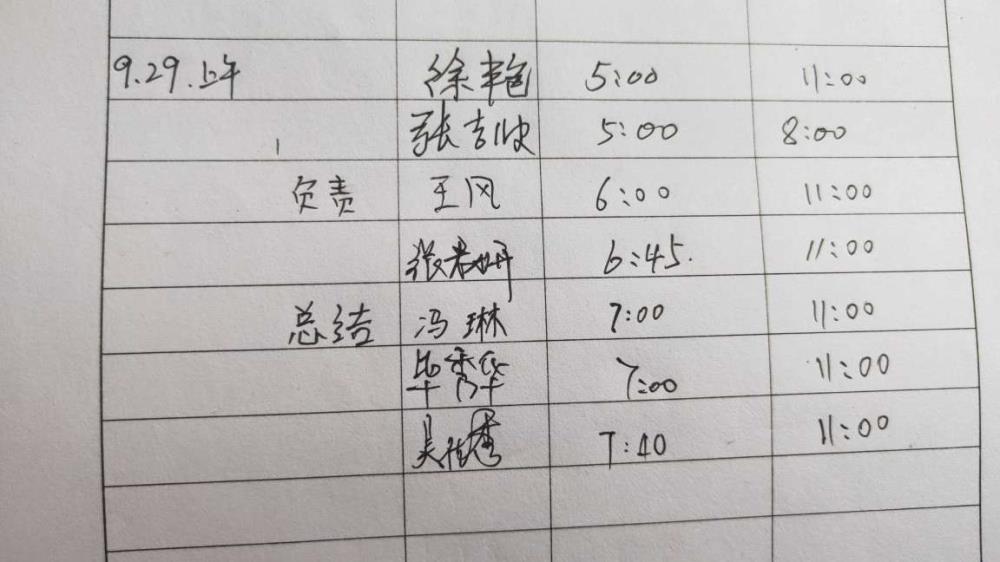 9.29.上午 徐艳 5:00 11:00
张吉 5:00 8:00
负责 王风 6:00 11:00
张 6:45. 11:00
总结 冯琳 7:00 11:00
毕秀华 7:00 11:00
吴 7:40 11:00